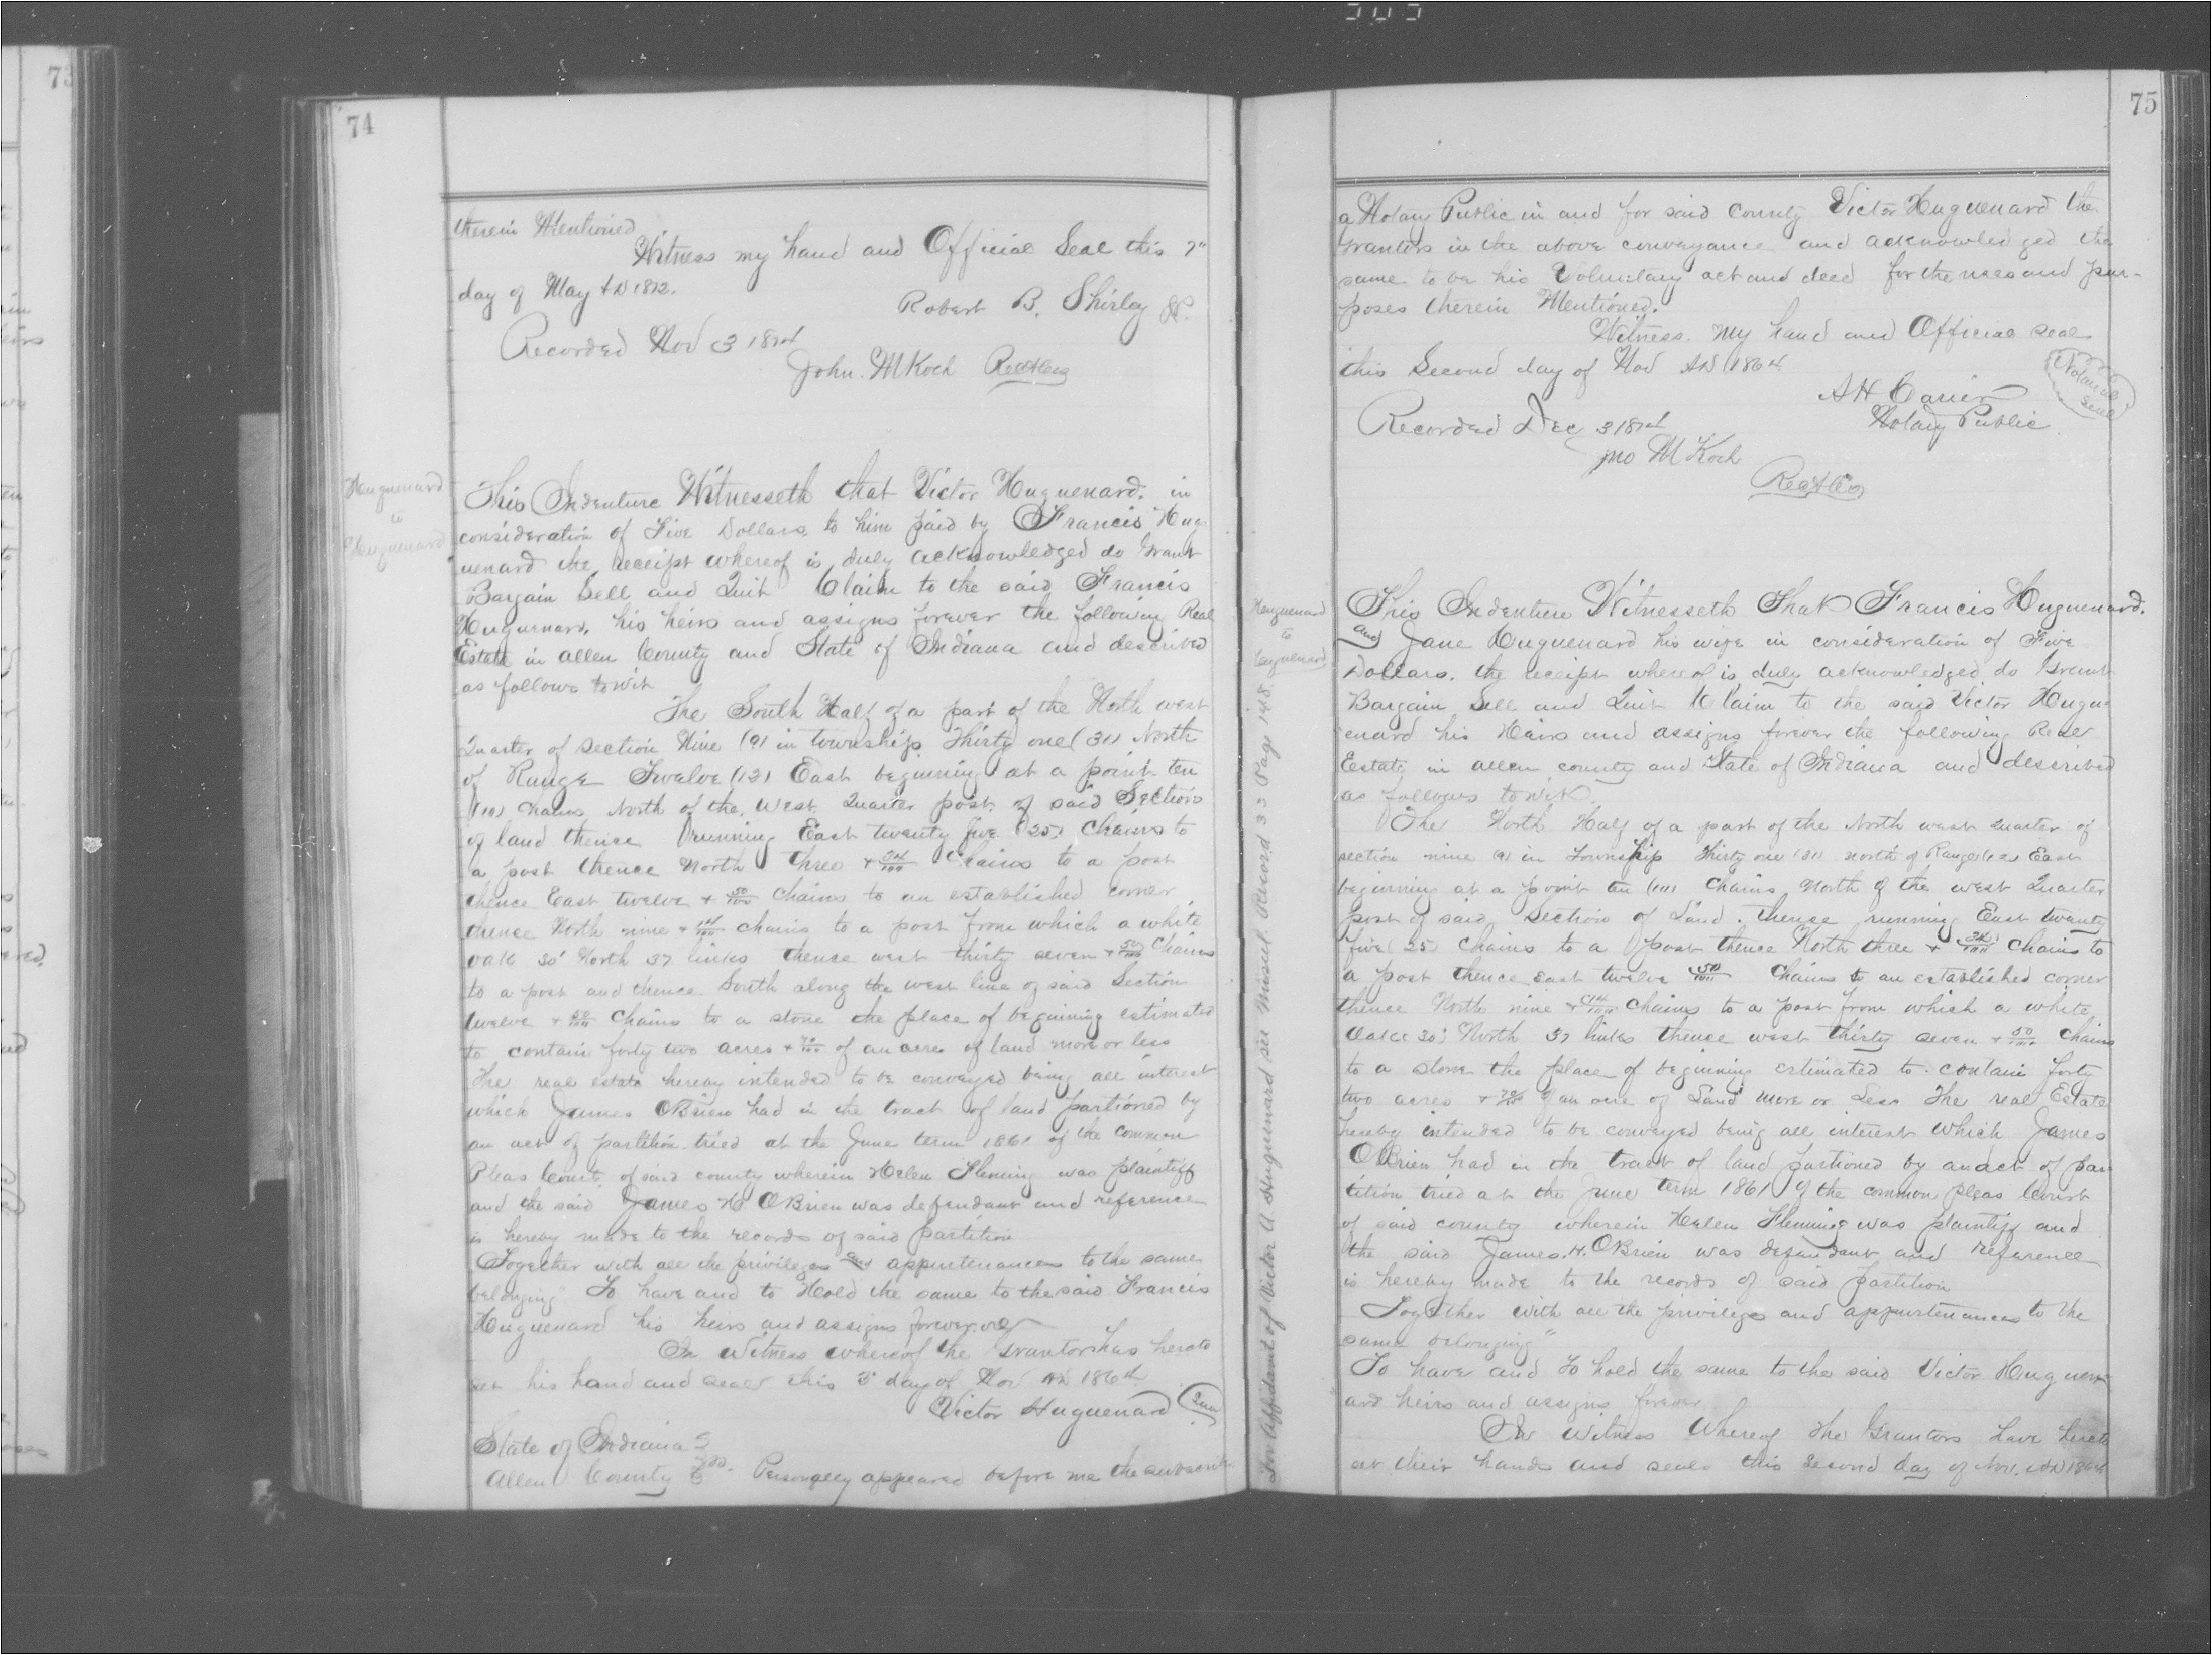 73
74
therein Mentioned
Witness my hand and Official Seal this 7"
day of May AD 1872.
Robert B. Shirley JP.
Recorded Nov 3 1874
John. M Koch Rec A Co
Huguenard
to
Huguenard
This Indenture Witnesseth that Victor Huguenard. in
consideration of Five Dollars, to him paid by Francis Hug-
uenard the receipt whereof is duly acknowledged do Grant
Bargain Sell and Quit Claim to the said Francis
Huguenard, his heirs and assigns forever the following Real
Estate in Allen County and State of Indiana and described
as follows towit
The South Half of a part of the North west
Quarter of Section Nine (9) in township Thirty one (31) North
of Range Twelve (12) East beginning at a point ten
(10) chains North of the West Quarter post of said Section
of land thence running East twenty five (25) Chains to
a post thence North three + 34/100 Chains to a post
thence East twelve + 50/100 Chains to an established corner
thence North nine + 14/100 chains to a post from which a white
oak 30' North 37 links thence west thirty seven + 50/100 Chains
to a post and thence South along the west line of said Section
twelve + 50/100 Chains to a stone the place of beginning estimated
to contain forty two acres + 70/100 of an acre of land more or less
The real estate hereby intended to be conveyed being all interest
which James OBrien had in the tract of land partioned by
an act of partition tried at the June term 1861 of the Common
Pleas Court of said county wherein Helen Fleming was plaintiff
and the said James H. OBrien was defendant and reference
is hereby made to the records of said partition
Together with all the privileges and appurtenances to the same
belonging" To have and to Hold the same to the said Francis
Huguenard his heirs and assigns forever
In Witness whereof the Grantor has hereto
set his hand and seal this 3 day of Nov AD 1864
Victor Huguenard Seal
State of Indiana
Allen County ss. Personally appeared before me the subscriber
75
a Notary Public in and for said County Victor Huguenard the
Grantors in the above conveyance and acknowledged the
same to be his Voluntary act and deed for the uses and pur-
poses therein Mentioned.
Witness. my hand and Official seal
this Second day of Nov AD 1864
Notarial Seal
A H Carier
Notary Public
Recorded Dec 3 1874
Jno M Koch
Rec A Co
For Affidavit of Victor A. Huguenard see Miscel. Record 33 Page 148
Huguenard
to
Huguenard
This Indenture Witnesseth That Francis Huguenard.
and Jane Huguenard his wife in consideration of Five
Dollars. the receipt whereof is duly acknowledged do Grant
Bargain Sell and Quit Claim to the said Victor Hugu-
enard his Heirs and assigns forever the following Real
Estate in Allen county and State of Indiana and described
as follows towit.
The North Half of a part of the North west Quarter of
section nine (9) in Township Thirty one (31) north of Range (12) East
beginning at a point ten (10) Chains North of the west Quarter
post of said Section of Land. thence running East twenty
five (25) Chains to a post thence North three + 34/100 Chains to
a post thence East twelve 50/100 Chains to an established corner
thence North nine + 14/100 Chains to a post from which a white
Oake 30' North 37 links thence west thirty seven + 50/100 Chains
to a stone the place of beginning estimated to contain forty
two acres + 70/100 of an acre of Land more or Less The real Estate
hereby intended to be conveyed being all interest which James
OBrien had in the tract of land partioned by an act of par
tition tried at the June term 1861 of the common pleas Court
of said county wherein Helen Fleming was plaintiff and
the said James. H. OBrien was defendant and reference
is hereby made to the records of said partition
Together with all the privileges and appurtenances to the
same belonging"
To have and to hold the same to the said Victor Huguen-
ard heirs and assigns forever
In Witness Whereof the Grantors have hereto
set their hands and seals this Second day of Nov. AD 1864